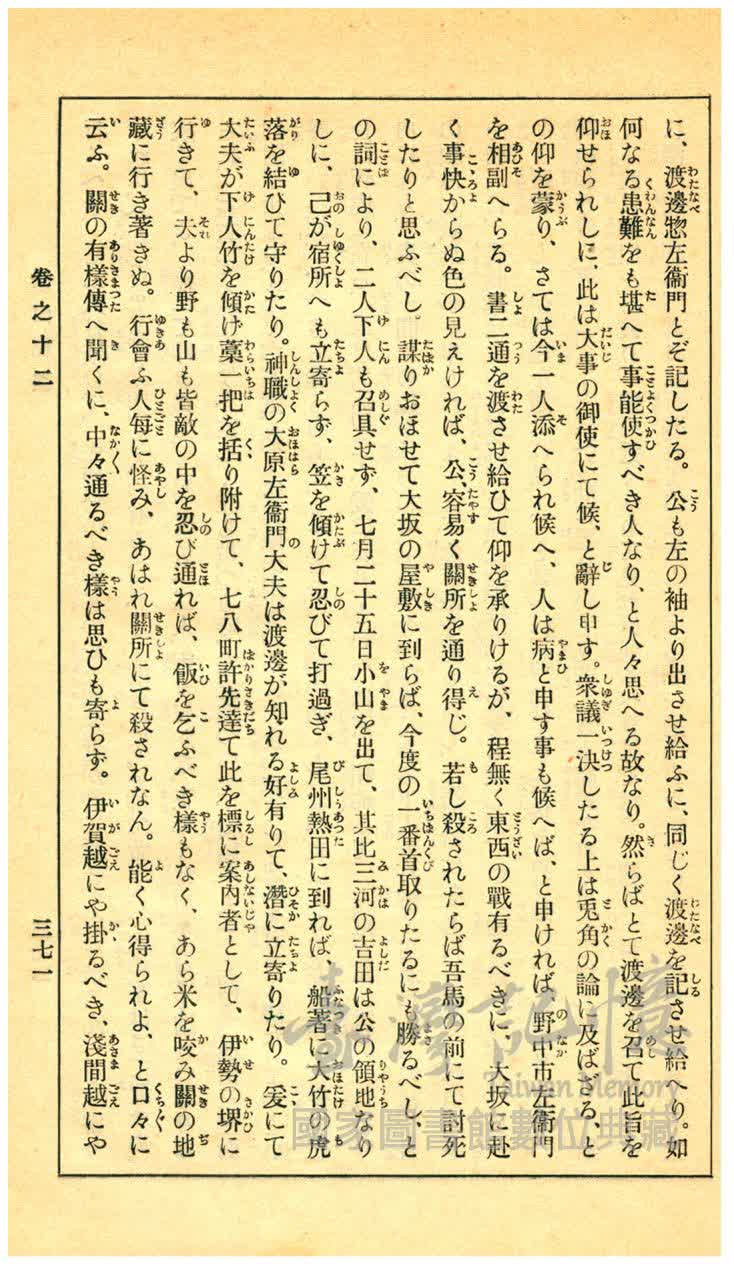 に、渡邊惣左衞門とぞ記したる。公も左の袖より出させ給ふに、同じく渡邊を記させ給へり。如
何なる患難をも堪へて事能使すべき人なり、と人々思へる故なり。然らばとて渡邊を召て此旨を
仰せられしに、此は大事の御使にて候、と辭し申す。衆議一決したる上は兎角の論に及ばざる、と
の仰を蒙り、さては今一人添へられ候へ、人は病と申す事も候へば、と申ければ、野中市左衞門
を相副へらる。書二通を渡させ給ひて仰を承りけるが、程無く東西の戰有るべきに、大坂に赴
く事快からぬ色の見えければ、公、容易く關所を通り得じ。若し殺されたらば吾馬の前にて討死
したりと思ふべし。謀りおほせて大坂の屋敷に到らば、今度の一番首取りたるにも勝るべし、と
の詞により、二人下人も召具せず、七月二十五日小山を出て、其比三河の吉田は公の領地なり
しに、己が宿所へも立寄らず、笠を傾けて忍びて打過ぎ、尾州熱田に到れば、船著に大竹の虎
落を結ひて守りたり。神職の大原左衞門大夫は渡邊が知れる好有りて、潛に立寄りたり。爰にて
大夫が下人竹を傾げ藁一把を括り附けて、七八町許先達て此を標に案內者として、伊勢の堺に
行きて、夫より野も山も皆敵の中を忍び通れば、飯を乞ふべき樣もなく、あら米を咬み關の地
藏に行き著きぬ。行會ふ人每に怪み、あはれ關所にて殺されなん。能く心得られよ、と口々に
云ふ。關の有樣傳へ聞くに、中々通るべき樣は思ひも寄らず。伊賀越にや掛るべき、淺間越にや
卷之十二
三七一
臺灣記憶
Taiwan Memory
國家圖書館數位典藏